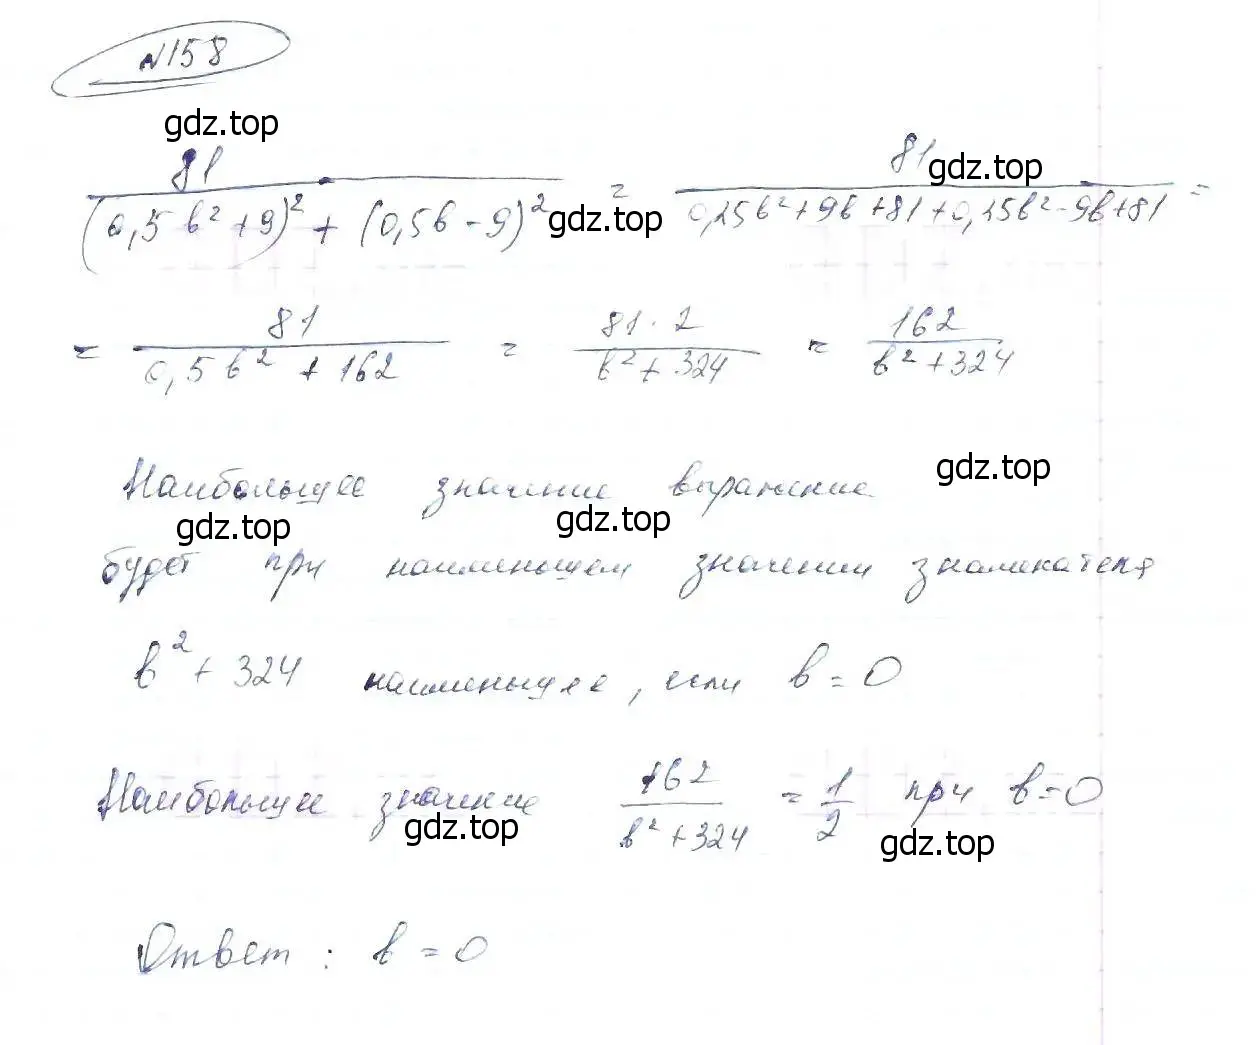 №158
gdz.top
81 / ((0,5b²+9)² + (0,5b-9)²) = 81 / (0,25b²+9b+81+0,25b²-9b+81) =
gdz.top gdz.top
= 81 / (0,5b² + 162) = 81·2 / (b²+324) = 162 / (b²+324)
Наибольшее значение выражение gdz.top
gdz.top gdz.top
будет при наименьшем значении знаменателя
b² + 324 наименьшее, если b=0
Наибольшее значение 162 / (b²+324) = 1/2 при b=0
gdz.top gdz.top
Ответ: b=0